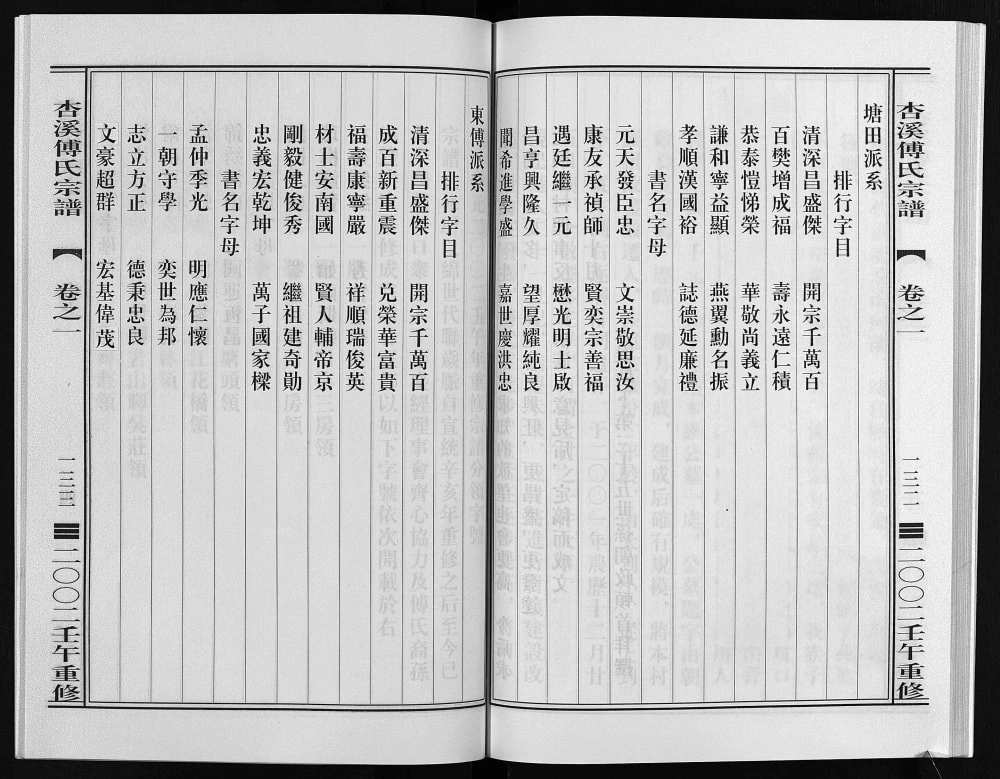 杏溪傅氏宗譜 卷之一 一三二 二〇〇二壬午重修
塘田派系
排行字目
清深昌盛傑 開宗千萬百
百樊增成福 壽永遠仁積
恭泰愷悌榮 華敬尚義立
謙和寧益顯 燕翼勳名振
孝順漢國裕 誌德延廉禮
書名字母
元天發臣忠 文崇敬思汝
康友承禎師 賢奕宗善福
遇廷繼一元 懋光明士啟
昌亨興隆久 望厚耀純良
聞希進學盛 嘉世慶洪忠
東傅派系
排行字目
清深昌盛傑 開宗千萬百
成百新重震 兑榮華富貴
福壽康寧嚴 祥順瑞俊英
材士安南國 賢人輔帝京
剛毅健俊秀 繼祖建奇勛
忠義宏乾坤 萬子國家樑
書名字母
孟仲季光 明應仁懷
一朝守學 奕世為邦
志立方正 德秉忠良
文豪超群 宏基偉茂
杏溪傅氏宗譜 卷之一 一三三 二〇〇二壬午重修